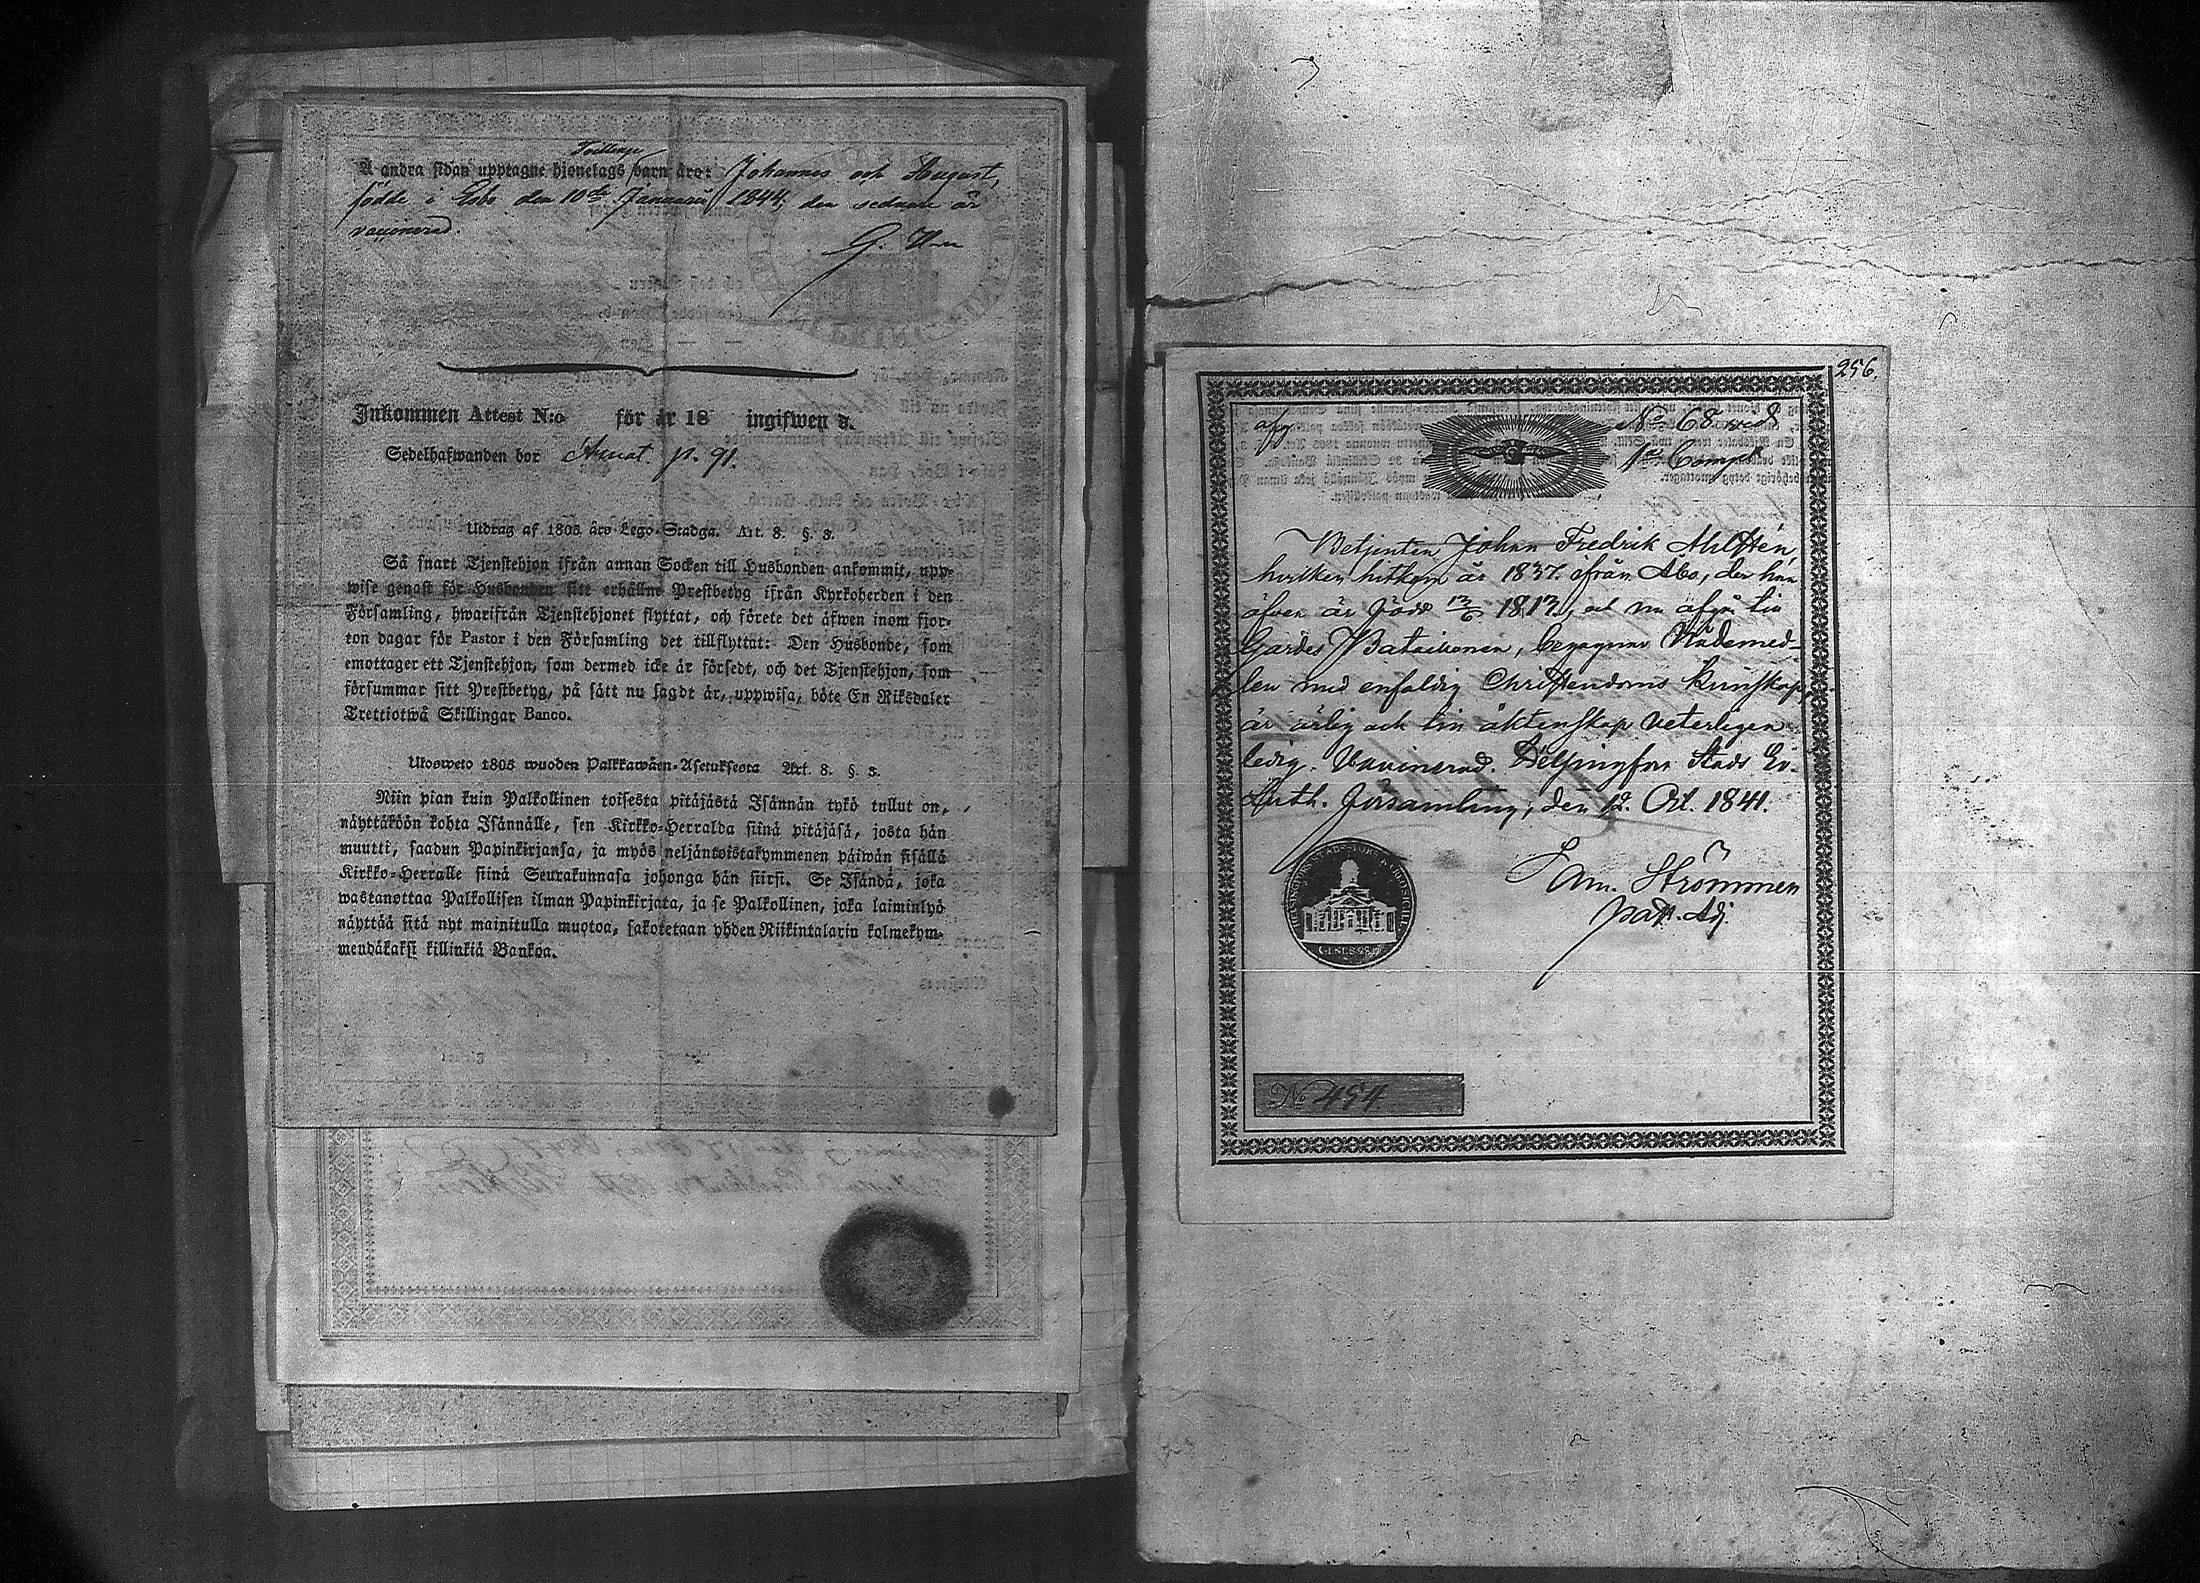 Tvillinge
Å andra sidan upptagne hjonelags barn äro: Johannes och August,
födde i Esbo den 10de Januarii 1844; den sednare är
vaccinerad.
Inkommen Attest N:o för år 18 ingifwen d.
Sedelhafwanden bor Annat. p. 91.
Utdrag af 1805 års Lego-Stadga. Art. 8. §. 3.
Så snart Tjenstehjon ifrån annan Socken till Husbonden ankommit, upp-
wise genast för Husbonden sitt erhållne Prestbetyg ifrån Kyrkoherden i den
Församling, hwarifrån Tjenstehjonet flyttat, och förete det äfwen inom fjor-
ton dagar för Pastor i den Församling det tillflyttat: Den Husbonde, som
emottager ett Tjenstehjon, som dermed icke är försedt, och det Tjenstehjon, som
försummar sitt Prestbetyg, på sätt nu sagdt är, uppwisa, böte En Riksdaler
Trettiotwå Skillingar Banco.
Ulosweto 1805 wuoden Palkkawäen-Asetuksesta Art. 8. §. 3.
Niin pian kuin Palkollinen toisesta pitäjästä Isännän tykö tullut on,
näyttäköön kohta Isännälle, sen Kirkko-Herralda siinä pitäjäsä, josta hän
muutti, saadun Papinkirjansa, ja myös neljäntoistakymmenen päiwän sisällä
Kirkko-Herralle siinä Seurakunnasa johonga hän siirsi. Se Isändä, joka
wastanottaa Palkollisen ilman Papinkirjata, ja se Palkollinen, joka laiminlyö
näyttää sitä nyt mainitulla muotoa, sakotetaan yhden Riikintalarin kolmekym-
mendäkaksi killinkiä Bankoa.
256.
afg
No 68 vid
1a Comp
Betjenten Johan Fredrik Ahlstén,
hvilken hitkom år 1837 ifrån Åbo, der han
äfven är född 13/6 1813, och nu afgår till
Gardes Bataillonen, begagnar Nådemed-
len med enfaldig Christendoms kunskap,
är ärlig och till äktenskap veterligen
ledig. Vaccinerad. Helsingfors Stads Ev.
Luth. Församling, den 12. Oct. 1841.
Sam. Strömmen
past. Adj.
No 454